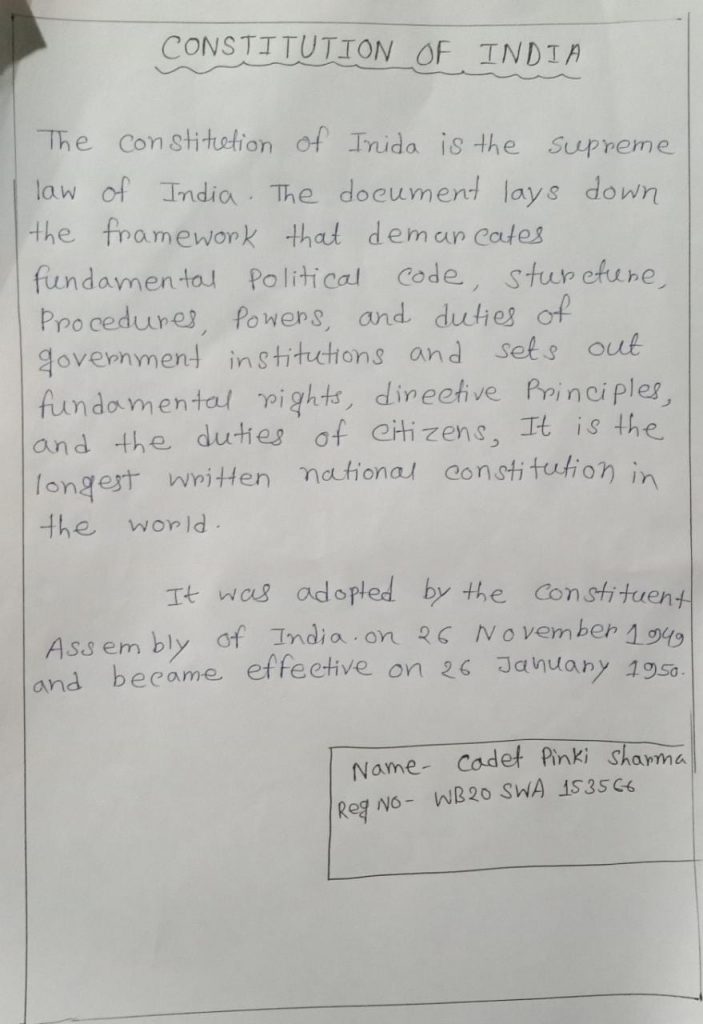 CONSTITUTION OF INDIA
The constitution of Inida is the supreme
law of India. The document lays down
the framework that demarcates
fundamental Political code, sturcture,
Procedures, Powers, and duties of
government institutions and sets out
fundamental rights, directive Principles,
and the duties of citizens, It is the
longest written national constitution in
the world.
It was adopted by the constituent
Assembly of India. on 26 November 1949
and became effective on 26 January 1950.
Name- Cadet Pinki Sharma
Reg NO- WB20 SWA 153566